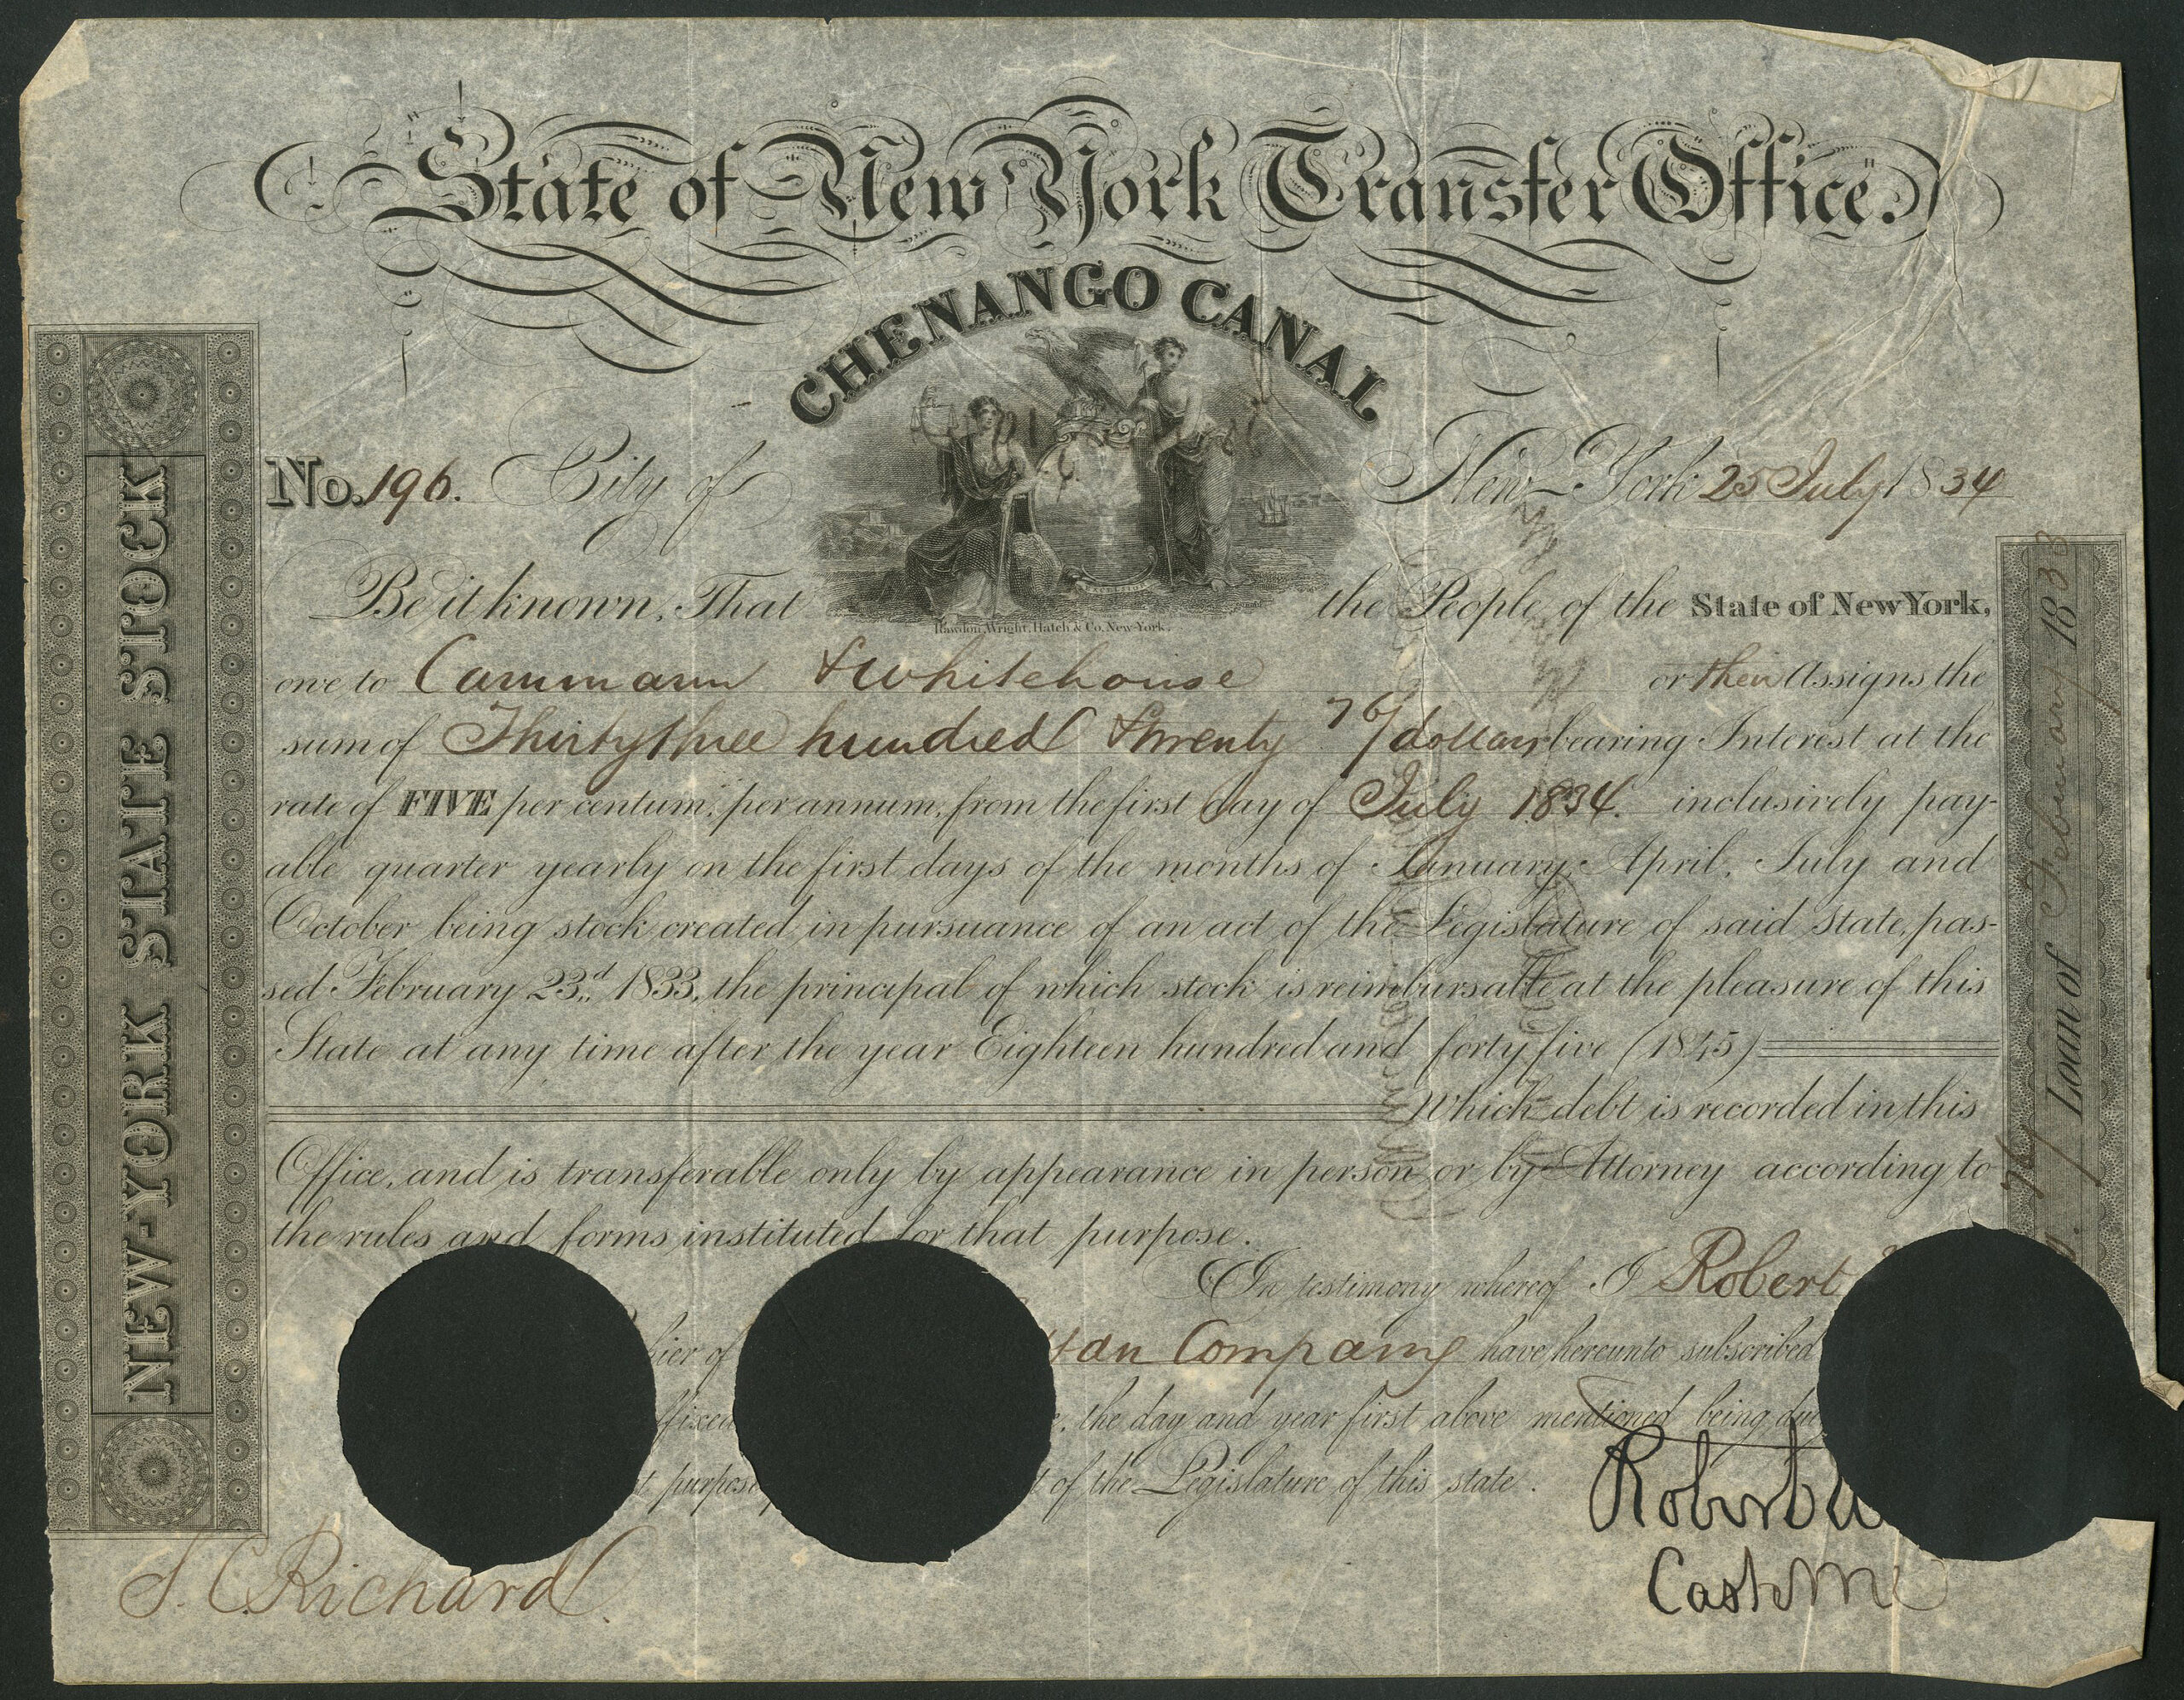 State of New York Transfer Office.
CHENANGO CANAL
No. 196. City of New-York 25 July 1834
Be it known, That the People of the State of New York,
Rawdon, Wright, Hatch & Co. New-York.
owe to Cammann & Whitehouse or their Assigns the
sum of Thirty three hundred & twenty 76/ dollars bearing Interest at the
rate of FIVE per centum, per annum, from the first day of July 1834. inclusively pay-
able quarter yearly on the first days of the months of January, April, July and
October being stock created in pursuance of an act of the Legislature of said State, pas-
sed February 23d. 1833, the principal of which stock is reimbursable at the pleasure of this
State at any time after the year Eighteen hundred and forty five (1845)
Which debt is recorded in this
Office, and is transferable only by appearance in person or by Attorney according to
the rules and forms instituted for that purpose.
In testimony whereof I Robert
hier of tan Company have hereunto subscribed
ffixed e, the day and year first above mentioned being du
t purpose t of the Legislature of this state.
Robert
Cash
J. C. Richard
NEW-YORK STATE STOCK
76/ Loan of February 1833